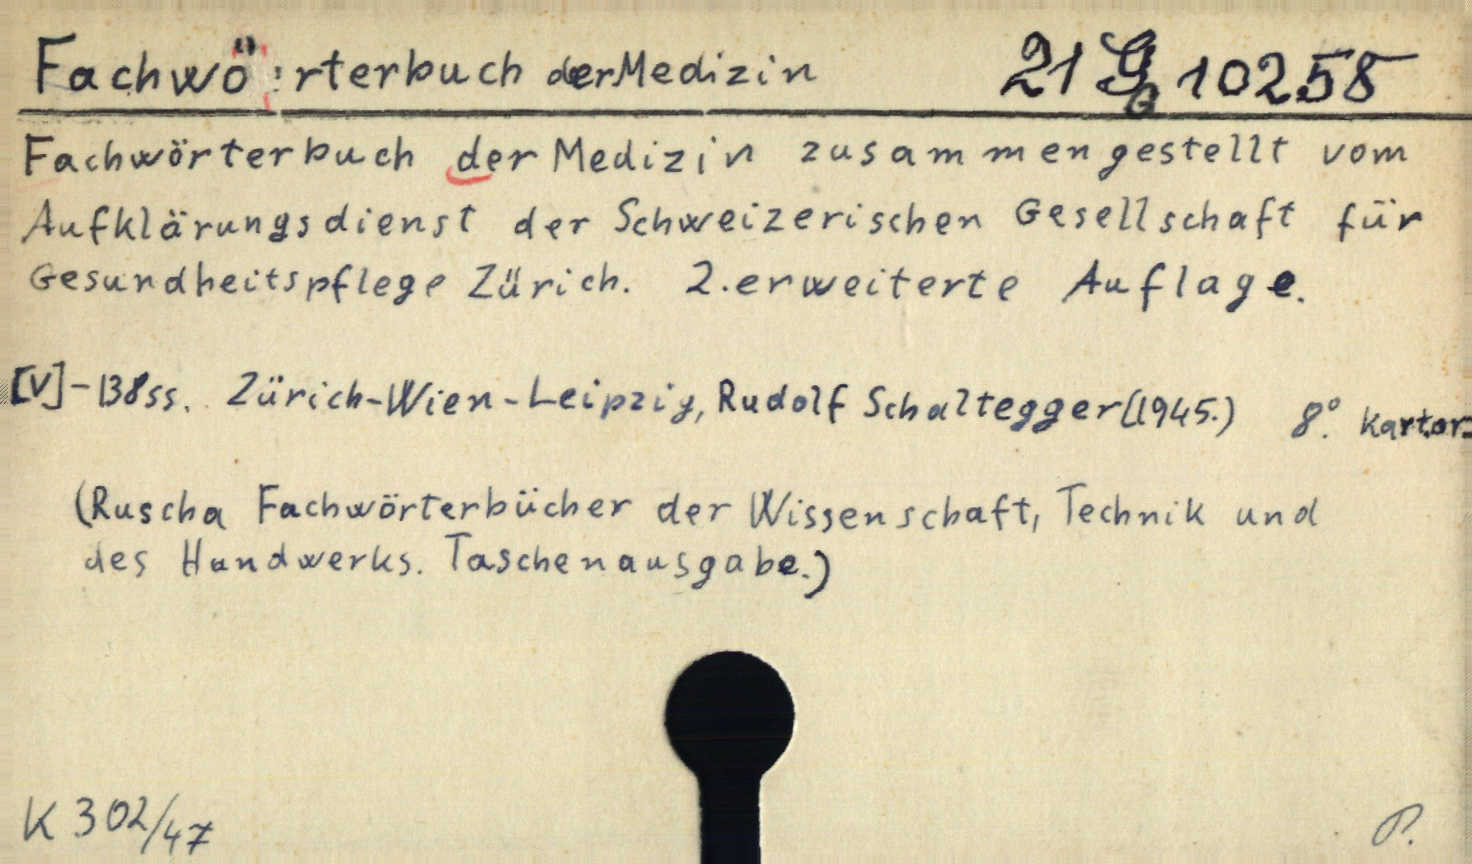 Fachwörterbuch der Medizin 21 G 10258
Fachwörterbuch der Medizin zusammengestellt vom
Aufklärungsdienst der Schweizerischen Gesellschaft für
Gesundheitspflege Zürich. 2. erweiterte Auflage.
[V]-138 ss. Zürich-Wien-Leipzig, Rudolf Schaltegger (1945.) 8°. karton
(Ruscha Fachwörterbücher der Wissenschaft, Technik und
des Handwerks. Taschenausgabe.)
K 302/47 P.